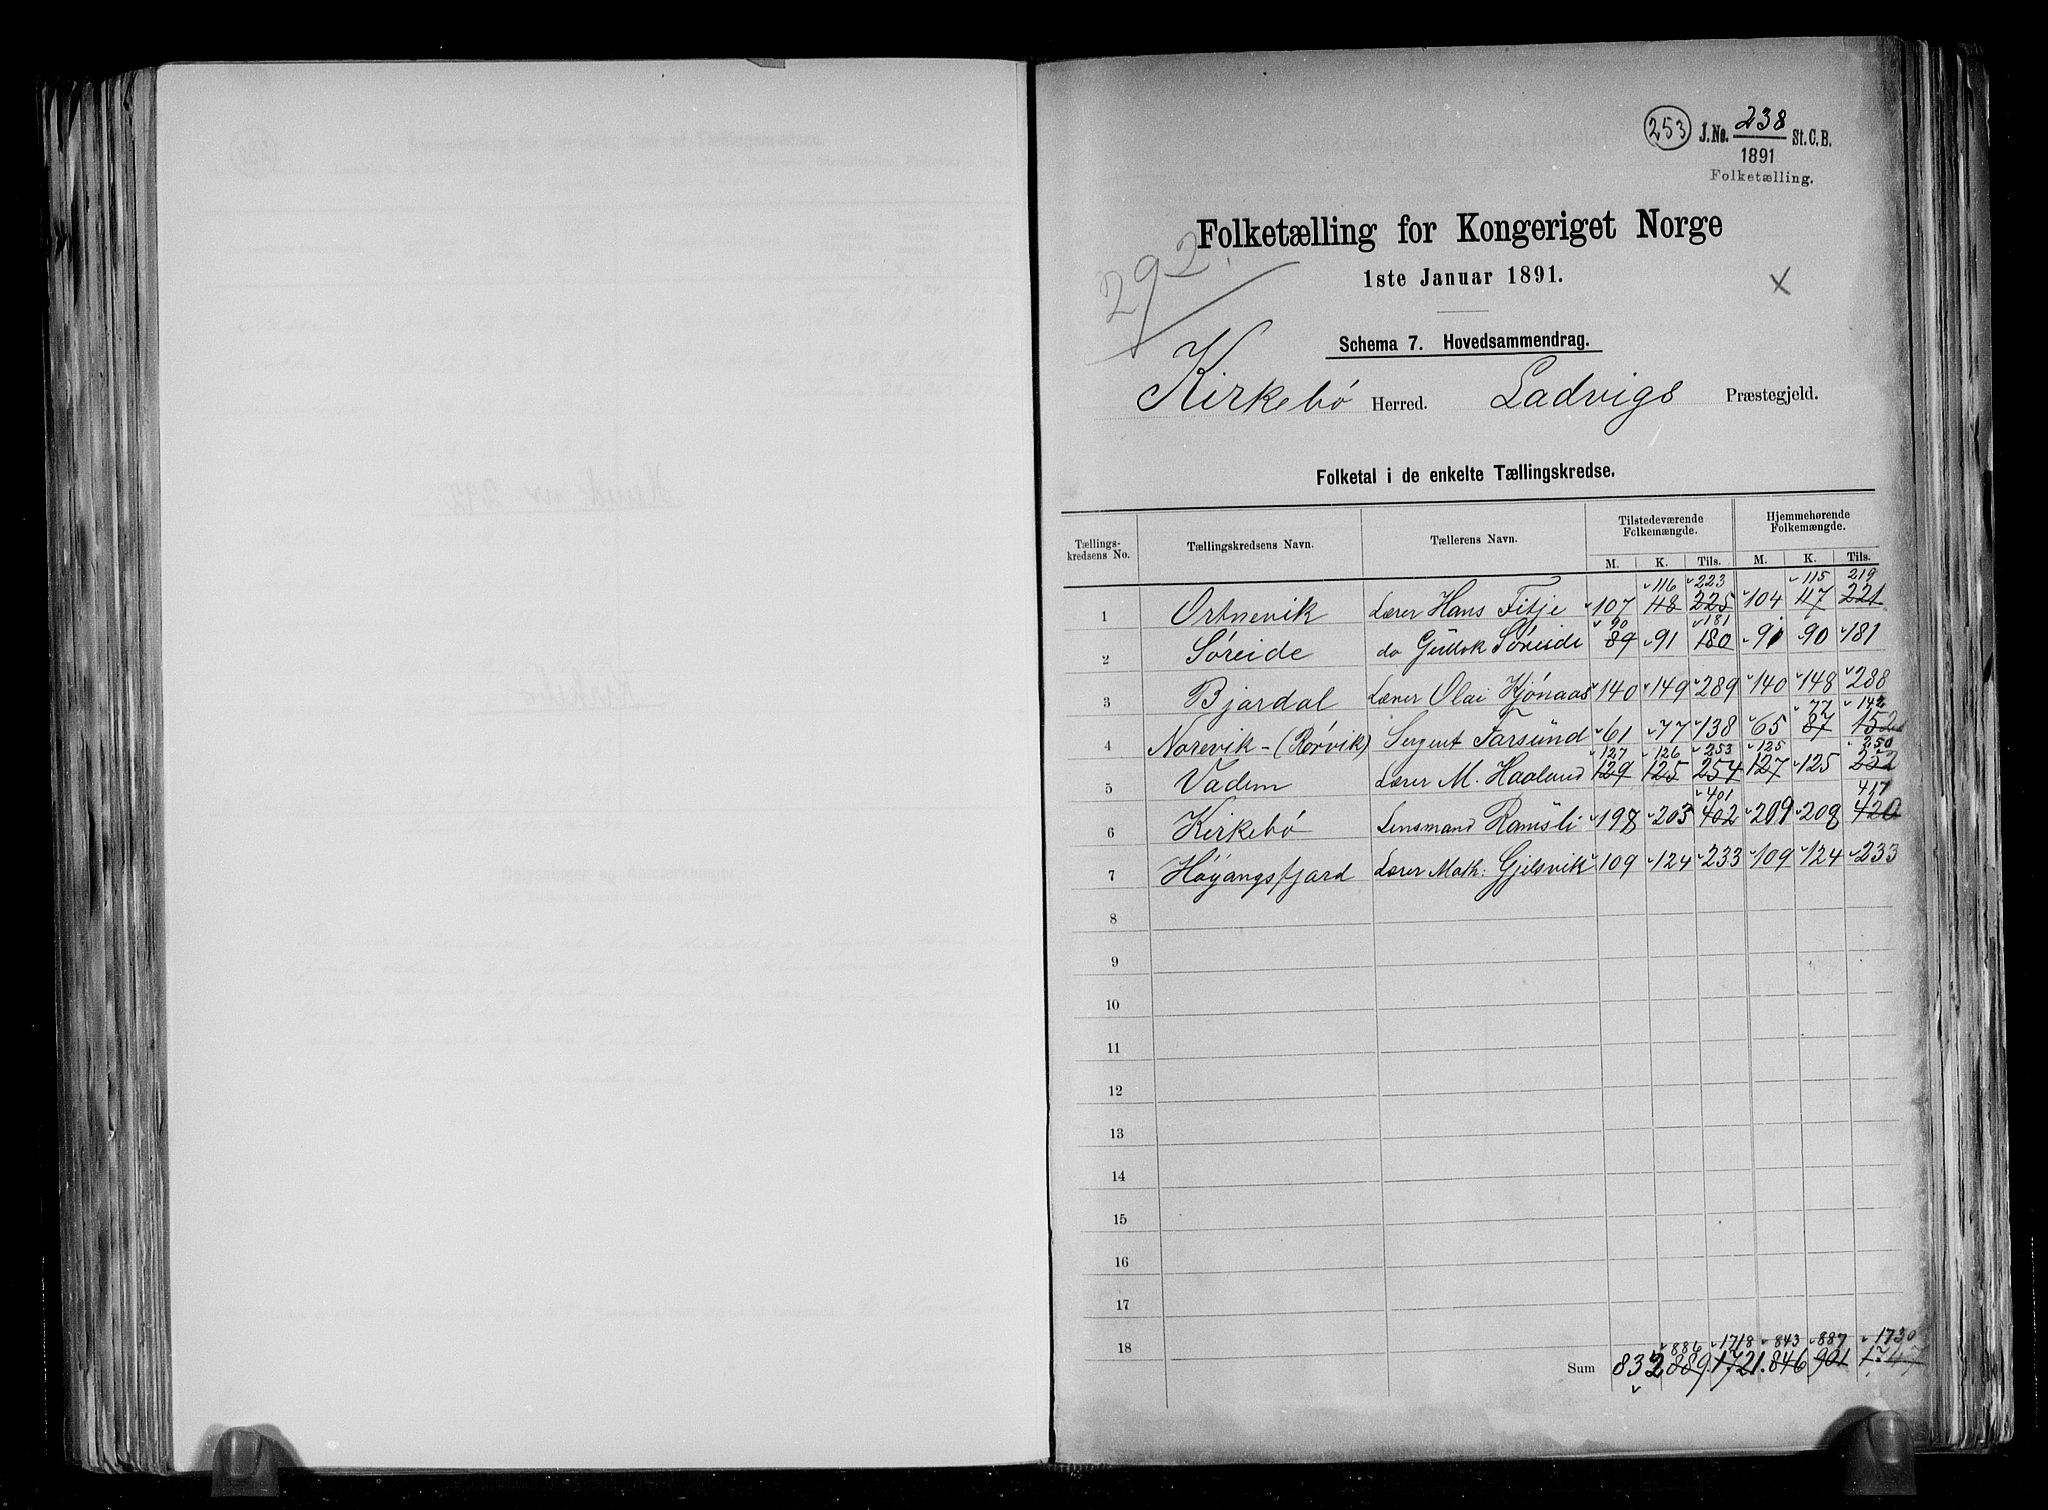 253 J.No. 238 St.C.B.
1891
Folketælling.
Folketælling for Kongeriget Norge
292.
1ste Januar 1891.
x
Schema 7. Hovedsammendrag.
Kirkebø Herred. Ladvigs Præstegjeld.
Folketal i de enkelte Tællingskredse.
Tællings-kredsens No. Tællingskredsens Navn. Tællerens Navn. Tilstedeværende Folkemængde. Hjemmehørende Folkemængde.
M. K. Tils. M. K. Tils.
116 223 115 219
1 Ortnevik Lærer Hans Fitje 107 118 225 104 117 221
90 181
2 Søreide do Gullek Søreide 89 91 180 91 90 181
3 Bjordal Lærer Olai Kjønaas 140 149 289 140 148 288
77 142
4 Norevik - (Rørvik) Sergent Farsund 61 77 138 65 87 152
127 126 253 125 250
5 Vadem Lærer M. Haaland 129 125 254 127 125 252
401 417
6 Kirkebø Lensmand Ramsli 198 203 402 209 208 420
7 Høyangsfjord Lærer Math: Gjelsvik 109 124 233 109 124 233
8
9
10
11
12
13
14
15
16
17
18
886 1718 843 887 1730
Sum 832 889 1721 846 901 1747
Kinds nr 292
Kirkebø